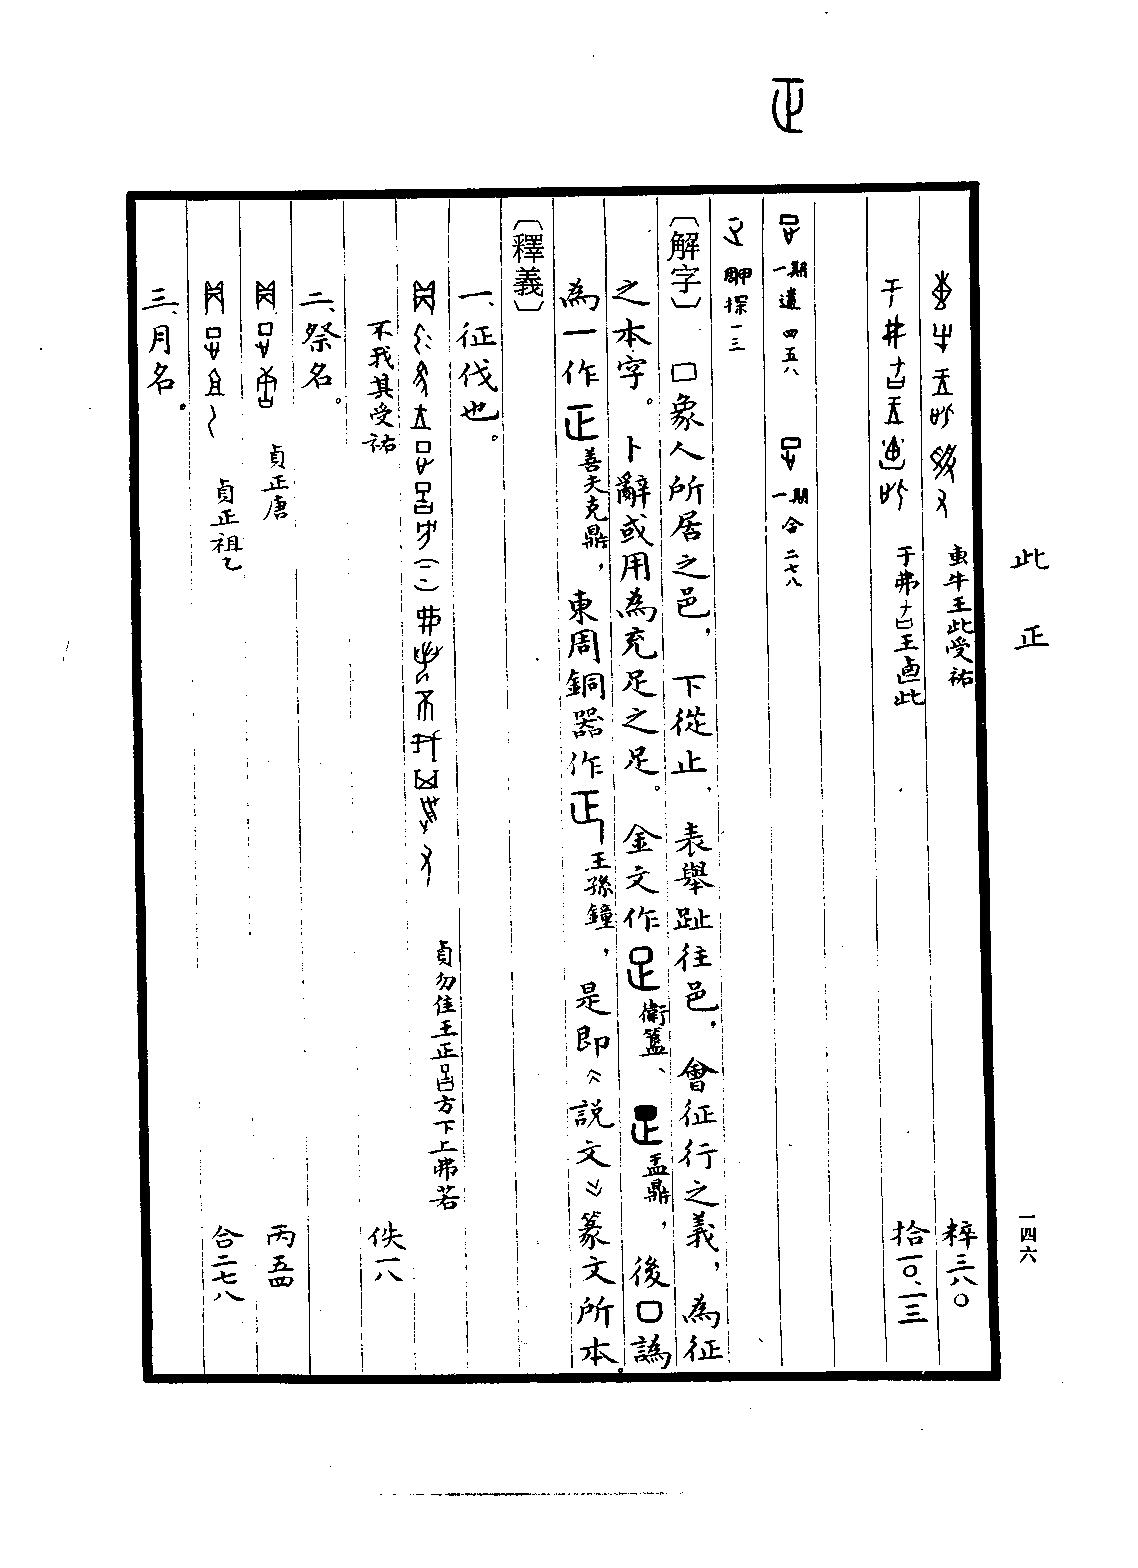 正
此 正
一四六
叀牛王此受祐 粹三八〇
于弗王迺此 拾一〇.一三
一期遺四五八 一期合二七八
周甲探一三
〔解字〕 口象人所居之邑，下從止，表舉趾往邑，會征行之義，為征
之本字。卜辭或用為充足之足。金文作衛簋、盂鼎，後口譌
為一作正善夫克鼎，東周銅器作王孫鐘，是即《說文》篆文所本。
〔釋義〕
一、征伐也。
貞勿隹王正方下上弗若
不我其受祐 佚一八
二、祭名。
貞正唐 丙五四
貞正祖乙 合二七八
三、月名。